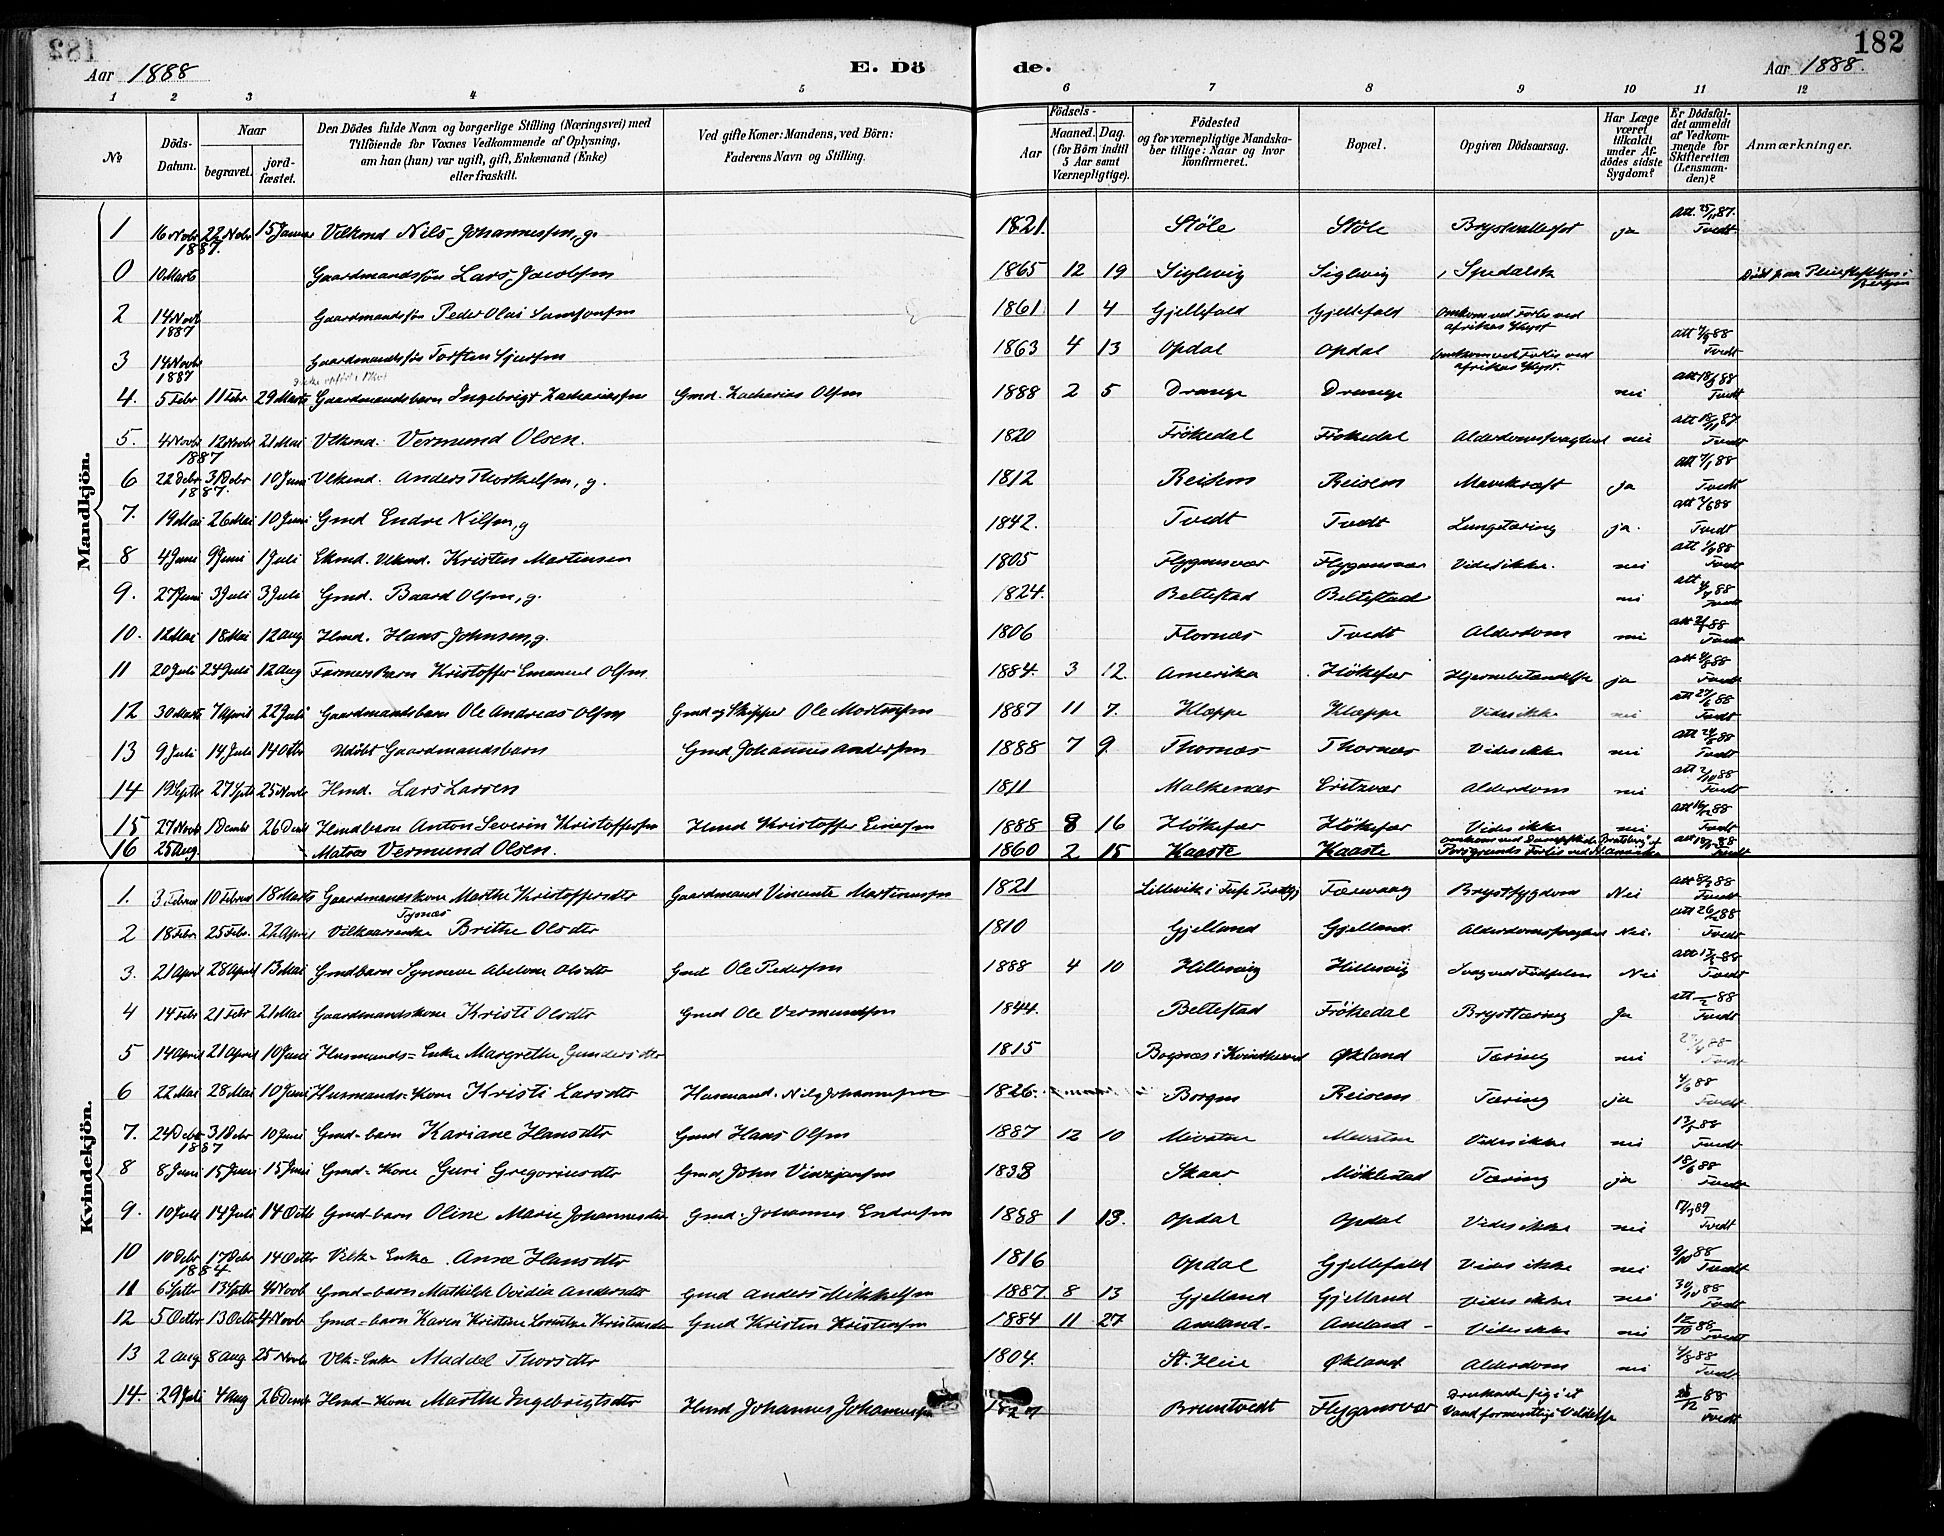 182
Aar 1888
E. Dö
de.
182
Aar 1888.
1 2 3 4 5 6 7 8 9 10 11 12
№
Döds-Datum.
Naar
begravet.
jord-fæstet.
Den Dödes fulde Navn og borgerlige Stilling (Næringsvei) med
Tilföiende for Voxnes Vedkommende af Oplysning,
om han (hun) var ugift, gift, Enkemand (Enke)
eller fraskilt.
Ved gifte Koner: Mandens, ved Börn:
Faderens Navn og Stilling.
Födsels-
Aar
Maaned. Dag.
(for Börn indtil
5 Aar samt
Værnepligtige).
Födested
og for værnepligtige Mandska-
ber tillige: Naar og hvor
konfirmeret.
Bopæl.
Opgiven Dödsaarsag.
Har Læge
været
tilkaldt
under Af-
dödes sidste
Sygdom?
Er Dödsfal-
det anmeldt
af Vedkom-
mende for
Skifteretten
(Lensman-
den)?
Anmærkninger.
Mandkjön.
1 16 Novbr 22 Nobr 15 Januar Vilkmd Nils Johannessen, g. 1821. Stöle Stöle ja Att. 25/11 87.
1887. Tvedt
0 10 Marts Gaardmandssön Lars Jacobsen 1865 12 19 Siglevig Siglevig Spedalsk
2 14 Novb Gaardmandssön Peder Olai Samsonsen 1861 1 4 Gjellefald Gjellefald Omkom ved Forlis ved
1887 afrikas Kyst
3 14 Novb Gaardmandssön Torsten Sjursen 1863 4 13 Opdal Opdal Omkom ved Forlis ved Tvedt
1887 afrikas Kyst.
4. 5 Febr 11 Febr 29 Marts Gaardmandsbarn Ingebrigt Zachariassen Gmd. Zacharias Olsen 1888 2 5 Drange Drange nei Tvedt
5. 4 Novb 12 Novb 21 Mai Vlkmd. Vermund Olsen. 1820 Frökedal Frökedal nei Tvedt
1887
6 22 Debr 31 Debr 10 Juni Vlkmd. Anders Thorkelsen, g. 1812 Reisem Reisem Mavekræft ja att 7/1 88
1887. Tvedt
7. 19 Mai 26 Mai 10 Juni Gmd Endre Nilsen, g 1842. Tvedt Tvedt Lungetæring ja. Tvedt
8 4 Juni 9 Juni 1 Juli Ekmd. Vlkmd. Kristen Martinsen 1805 Flygansvær Flygansvær Vides ikke. nei Tvedt
9. 27 Juni 3 Juli 3 Juli Gmd. Baard Olsen, g. 1824. Beltestad Beltestad nei Tvedt
10. 12 Mai 18 Mai 12 Aug Hmd. Hans Johnsen, g. 1806 Flornæs Tvedt Alderdom nei Tvedt
11 20 Juli 24 Juli 12 Aug Farmers Barn Kristoffer Emanuel Olsen. 1884. 3 12. Amerika Hökefær Hjernebetændelse ja Tvedt
12 30 Marts 7 April 22 Juli Gaardmandsbarn Ole Andreas Olsen Gmd og Skipper Ole Mortensen 1887 11 7. Kleppe Kleppe Vides ikke nei Tvedt
13 9 Juli 14 Juli 14 Otbr Udöbt Gaardmandsbarn Gmd Johannes Andersen 1888 7 9 Thornæs Thornæs Vides ikke nei Tvedt
14 19 Septb 27 Sptb 25 Novb Hmd. Lars Larsen 1811 Malkenæs Eritzvær Alderdom nei Tvedt
15 27 Novb 1 Decmbr 26 Decb Hmdbarn Anton Severin Kristoffersen Hmd Kristoffer Einersen 1888 8 16 Hökefær Hökefær Vides ikke nei Tvedt
16 25 Aug. Matros Vermund Olsen. 1860 2 15 Kaaste Kaaste Tvedt
Kvindekjön.
1. 3 Februar 10 Februar 18 Marts Gaardmandskone Marthe Kristoffersdtr Gaardmand Vincents Martinusen 1821 Færvaag Brystsygdom Nei Tvedt
2 18 Febr 25 Febr. 22 April Brithe Olsdtr 1810 Gjelland Gjelland Nei. Tvedt
Tysnæs
3. 21 April 28 April 13 Mai Gmdbarn Abelone Olsdtr Gmd Ole Pedersen 1888 4 10 Hillesvig Hillesvig Svag ved Födselen Nei Tvedt
4 14 Febr 21 Febr 21 Mai Gaardmandskone Kristi Olsdtr Gmd Ole Vermundsen 1844. Beltestad Frökedal Brysttæring Ja Tvedt
5 14 April 21 April 10 Juni Husmands-Enke Margrethe Gundersdtr 1815 Økland Tæring nei Tvedt
6 22 Mai 28 Mai 10 Juni Husmands-Kone Kristi Larsdtr Husmand. Nils Johannesen 1826. Reisem Tæring ja 4/6 88 Tvedt
7. 24 Debr 31 Debr 10 Juni Gmd-barn Kariane Hansdtr Gmd Hans Olsen 1887 12 10 Vides ikke nei Tvedt
1887
8 8 Juni 15 Juni 15 Juni Gmd-Kone Guri Gregoriusdtr Gmd John 1838 Skaar Möklestad Tæring ja 18/6 88 Tvedt
9. 10 Juli 14 Juli 14 Octb Gmd-barn Oline Marie Johannesdtr Gmd. Johannes Endresen 1888 1 13. Opdal Opdal Vides ikke nei Tvedt
10 10 Debr 17 Debr 14 Octbr Vilk-Enke Anne Hansdtr 1816 Opdal Gjellefald Vides ikke nei 9/10 88 Tvedt
1884
11 6 Septb 13 Septb 4 Novb Gmd-barn Mathilde Ovidia Andersdtr Gmd Anders Mikkelsen 1887 8 13 Gjelland Gjelland Vides ikke nei Tvedt
12 5 Octbr 13 Octb 4 Novb Gmd-barn Karen Kristine Lorentze Kristensdtr Gmd Kristen Kristensen 1884 11 27 Amland- Amland- Vides ikke nei 12/10 88 Tvedt
13 2 Aug 8 Aug 25 Novb Vlk-Enke Maddel Thorsdtr 1804. Økland Alderdom nei 4/8 88 Tvedt
14. 29 Juli 4 Aug 26 Decmb Hmd-Kone Marthe Ingebrigtsdtr Hmd Johannes Johannessen Bruntvedt Flygansvær Druknede sig i et Tvedt